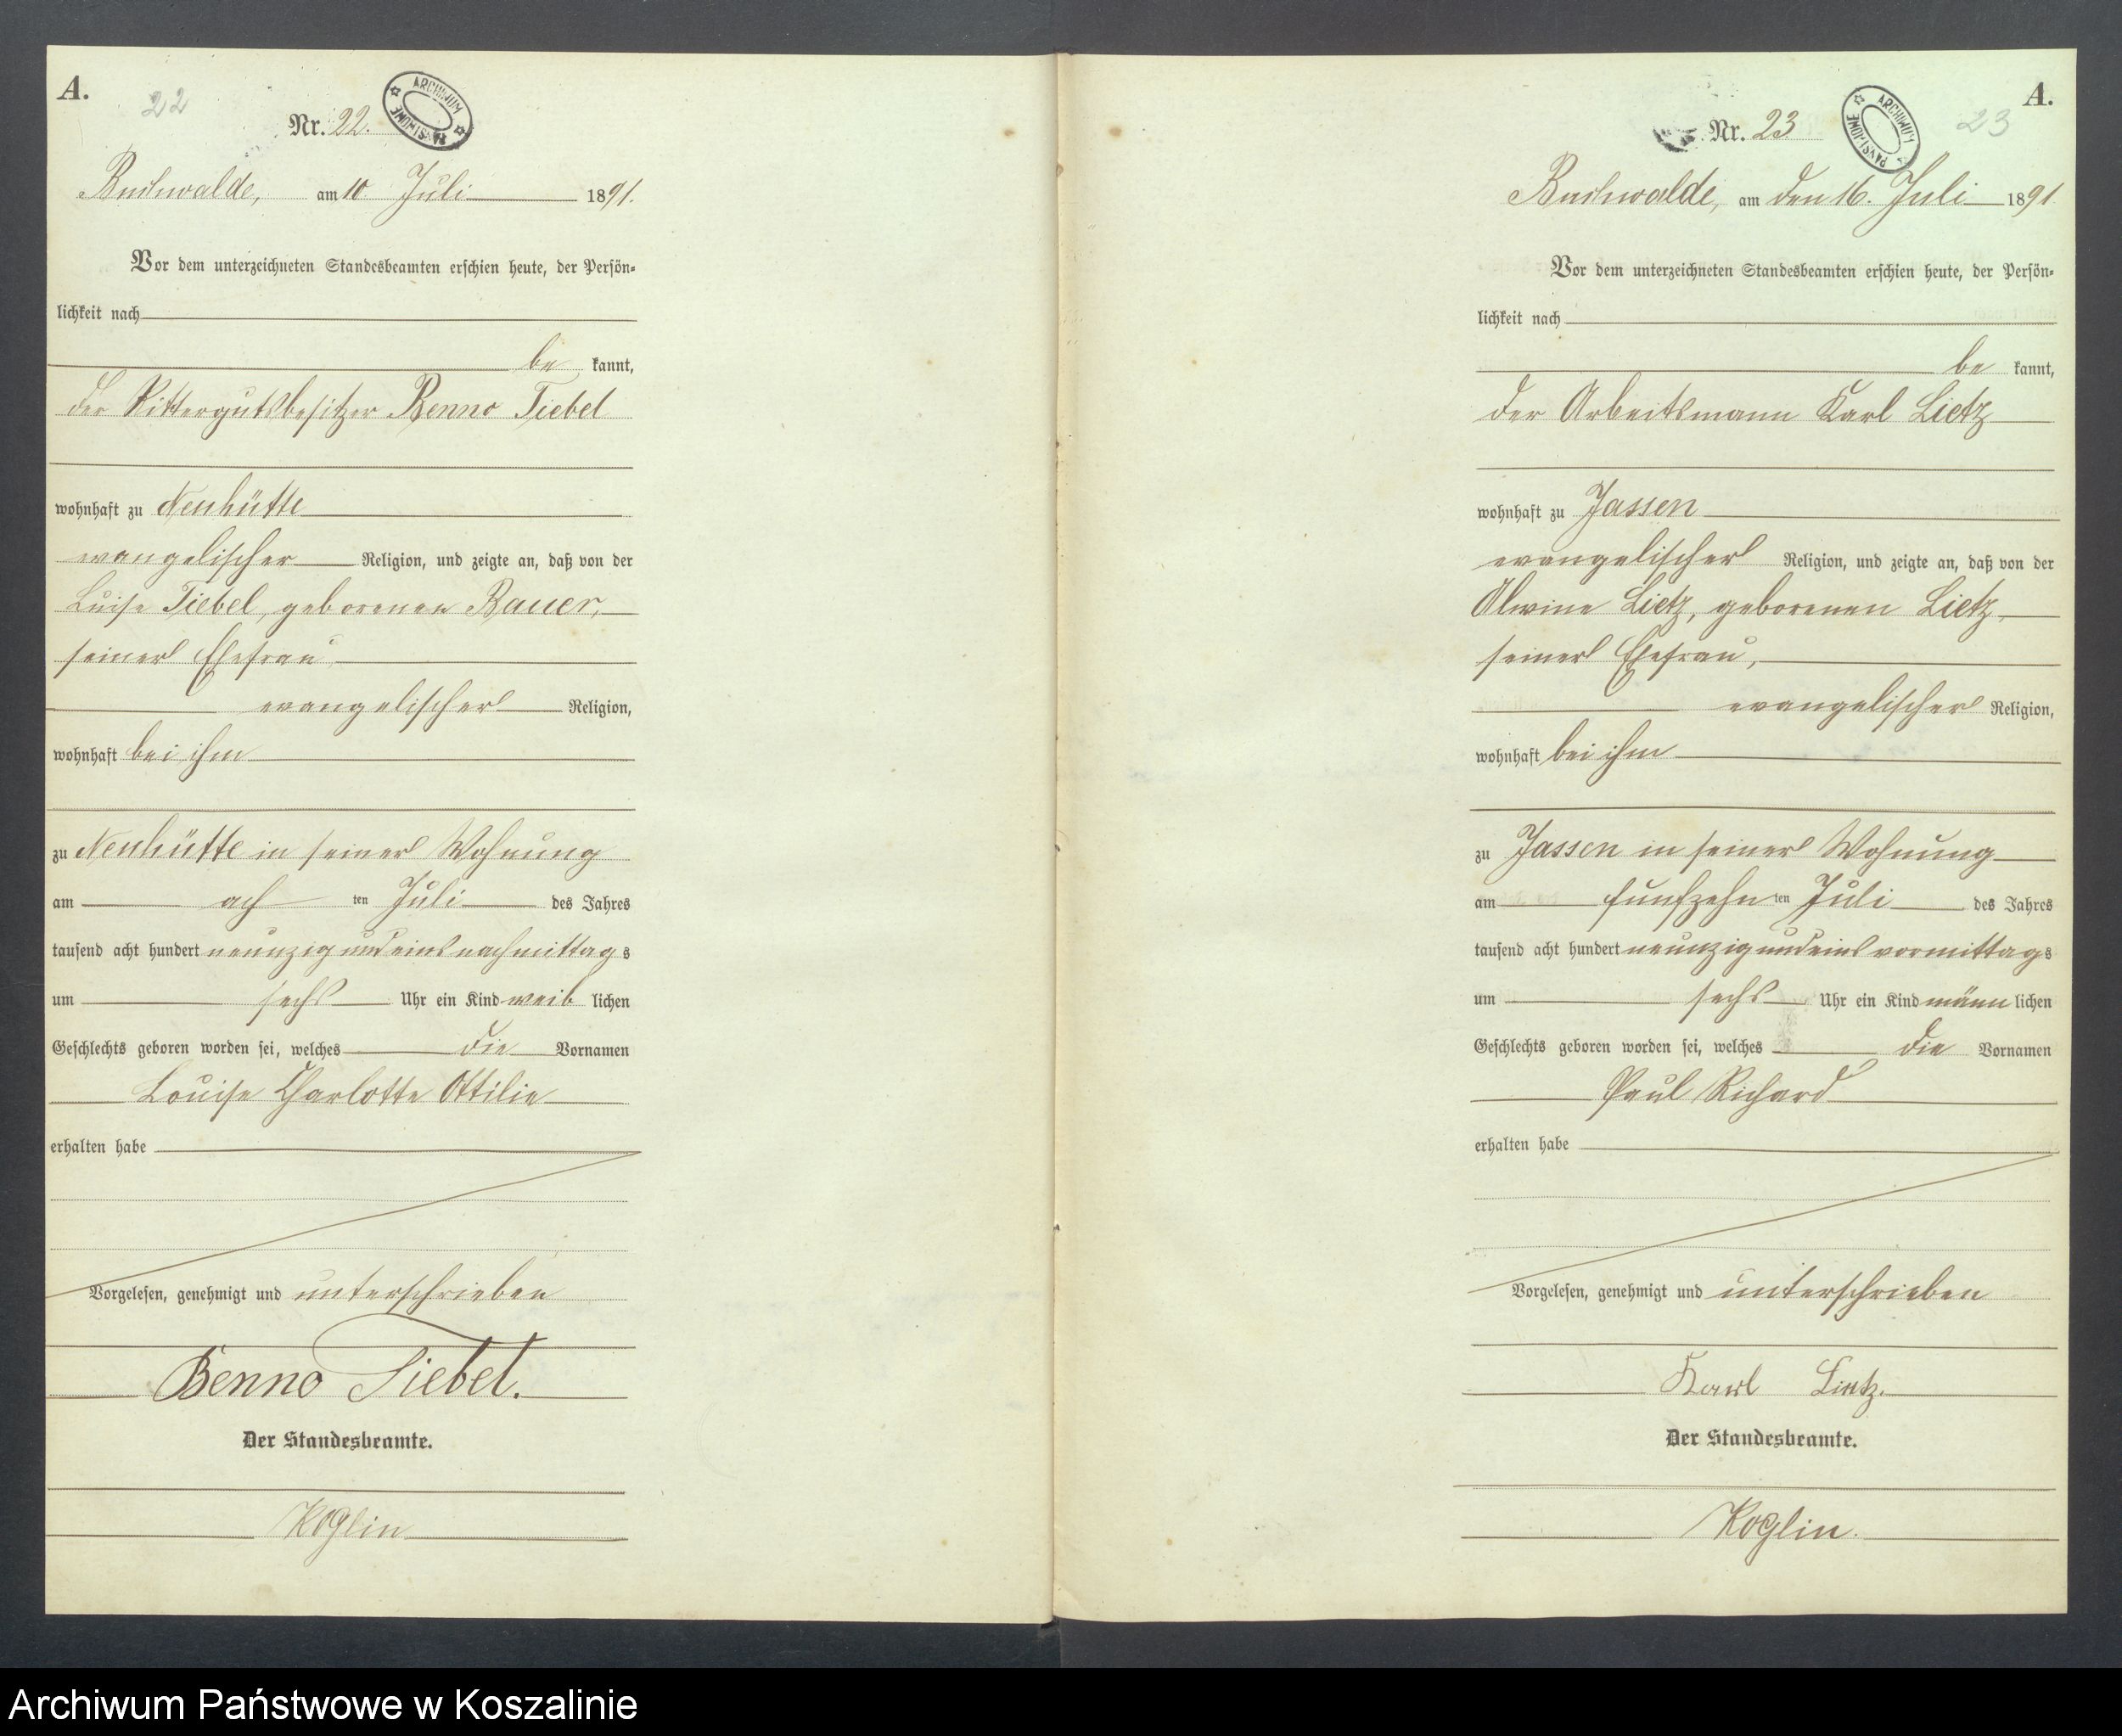 A.
22
Nr. 22.
ARCHIWUM PAŃSTWOWE
Buchwalde, am 10 Juli 1891.
Vor dem unterzeichneten Standesbeamten erschien heute, der Persön-
lichkeit nach
be kannt,
der Rittergutsbesitzer Benno Tiebel
wohnhaft zu Neuhütte
evangelischer Religion, und zeigte an, daß von der
Luise Tiebel, geborenen Bauer,
seiner Ehefrau
evangelischer Religion,
wohnhaft bei ihm
zu Neuhütte in seiner Wohnung
am ach ten Juli des Jahres
tausend acht hundert neunzig und eins nachmittag s
um sechs Uhr ein Kind weib lichen
Geschlechts geboren worden sei, welches die Vornamen
Louise Charlotte Ottilie
erhalten habe
Vorgelesen, genehmigt und unterschrieben
Benno Tiebel.
Der Standesbeamte.
Koglin
A.
23
Nr. 23
ARCHIWUM PAŃSTWOWE
Buchwalde, am den 16. Juli 1891
Vor dem unterzeichneten Standesbeamten erschien heute, der Persön-
lichkeit nach
be kannt,
der Arbeitsmann Karl Lietz
wohnhaft zu Jassen
evangelischer Religion, und zeigte an, daß von der
Alwine Lietz, geborenen Lietz,
seiner Ehefrau,
evangelischer Religion,
wohnhaft bei ihm
zu Jassen in seiner Wohnung
am funfzehn ten Juli des Jahres
tausend acht hundert neunzig und eins vormittag s
um sechs Uhr ein Kind männ lichen
Geschlechts geboren worden sei, welches die Vornamen
Paul Richard
erhalten habe
Vorgelesen, genehmigt und unterschrieben
Karl Lietz.
Der Standesbeamte.
Koglin.
Archiwum Państwowe w Koszalinie